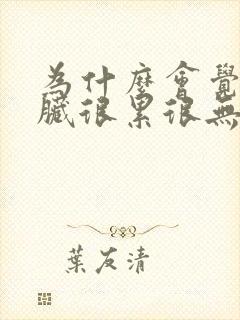 為什麼會覺
臟很累很無
葉友清